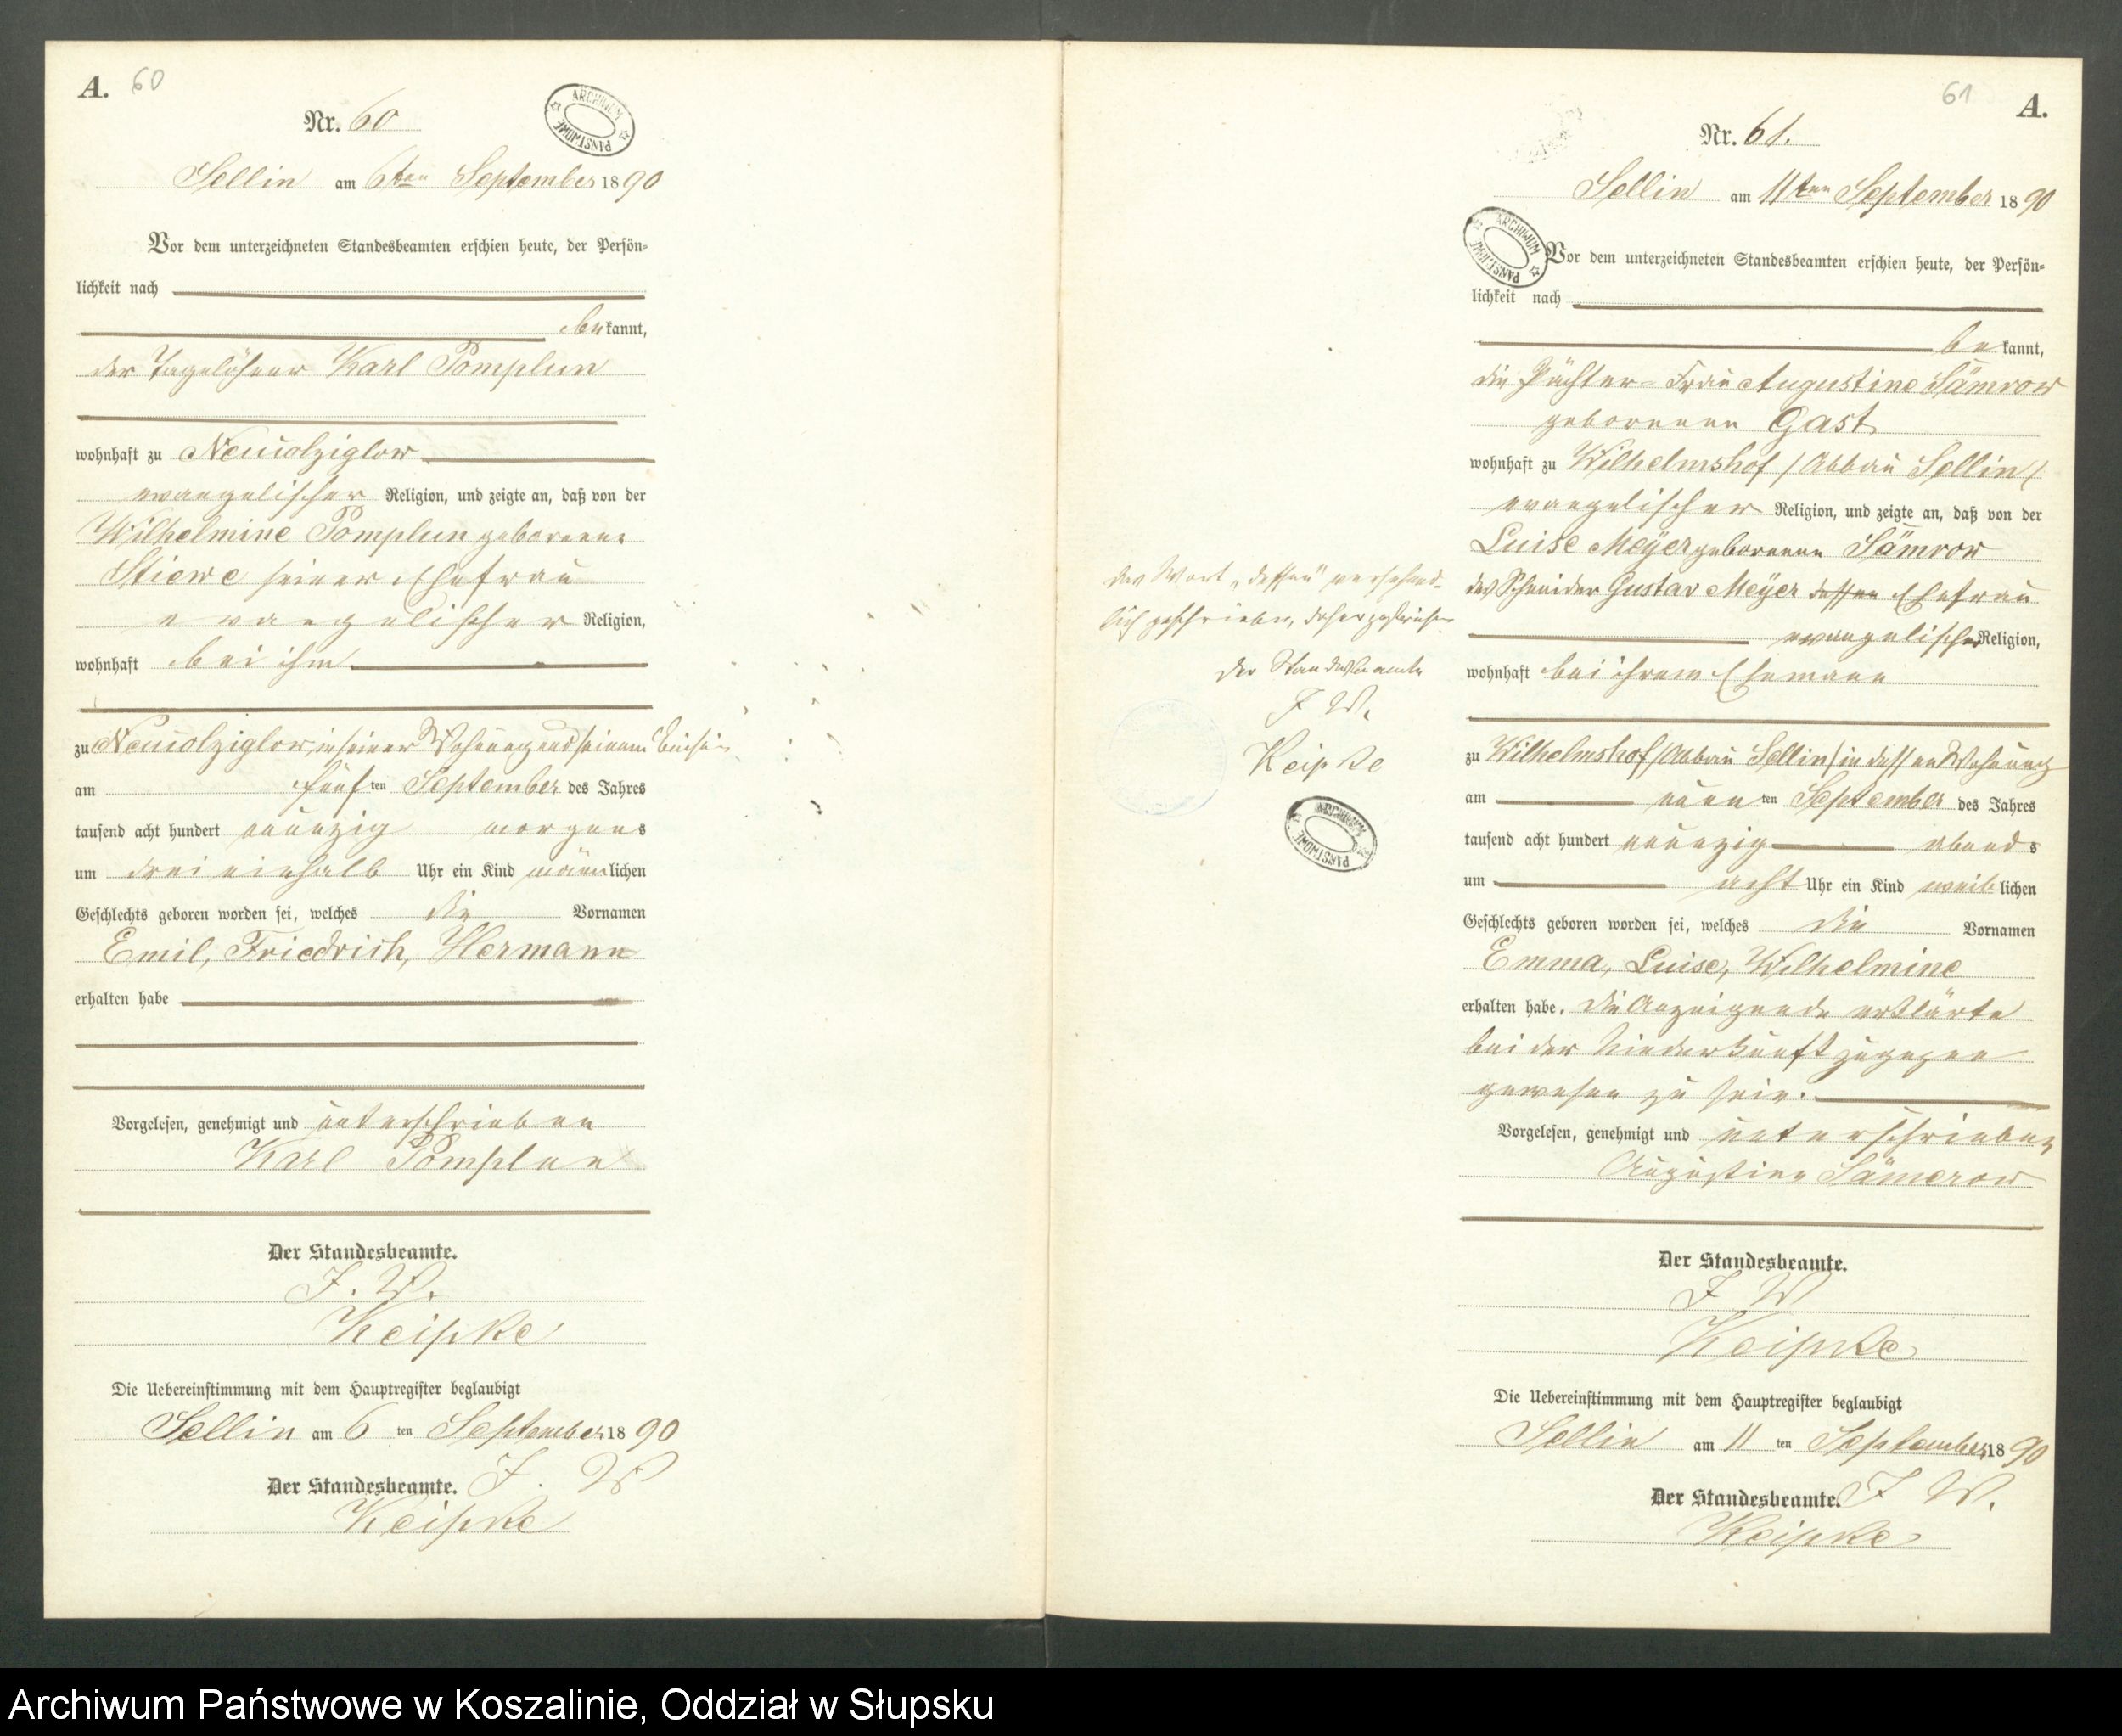 A. 60
Nr. 60
ARCHIWUM PAŃSTWOWE
Sellin am 6ten September 1890
Vor dem unterzeichneten Standesbeamten erschien heute, der Persön-
lichkeit nach
bekannt,
der Tagelöhner Karl Pomplun
wohnhaft zu Neuolziglow
evangelischer Religion, und zeigte an, daß von der
Wilhelmine Pomplun geborenen
Stiewe seiner Ehefrau
evangelischer Religion,
wohnhaft bei ihm
zu Neuolziglow, in seiner Wohnung und seinem Beisein
am fünften September des Jahres
tausend acht hundert neunzig morgens
um drei einhalb Uhr ein Kind männlichen
Geschlechts geboren worden sei, welches die Vornamen
Emil, Friedrich, Hermann
erhalten habe
Vorgelesen, genehmigt und unterschrieben
Karl Pomplun
Der Standesbeamte.
J. V.
Keipke
Die Uebereinstimmung mit dem Hauptregister beglaubigt
Sellin am 6ten September 1890
Der Standesbeamte. J. V.
Keipke
61 A.
Nr. 61.
Sellin am 11ten September 1890
ARCHIWUM PAŃSTWOWE
Vor dem unterzeichneten Standesbeamten erschien heute, der Persön-
lichkeit nach
bekannt,
die Pächter-Frau Augustine Sämrow
geborenen Gast
wohnhaft zu Wilhelmshof /Abbau Sellin/
evangelischer Religion, und zeigte an, daß von der
Luise Meÿer geborenen Sämrow
des Schneider Gustav Meÿer dessen Ehefrau
evangelischer Religion,
wohnhaft bei ihrem Ehemann
zu Wilhelmshof /Abbau Sellin/ in dessen Wohnung
am neunten September des Jahres
tausend acht hundert neunzig abends
um acht Uhr ein Kind weiblichen
Geschlechts geboren worden sei, welches die Vornamen
Emma, Luise, Wilhelmine
erhalten habe. Die Anzeigende erklärte
bei der Niederkunft zugegen
gewesen zu sein.
Vorgelesen, genehmigt und unterschrieben
Augustine Sämerow
Der Standesbeamte.
J V
Keipke
Die Uebereinstimmung mit dem Hauptregister beglaubigt
Sellin am 11ten September 1890
Der Standesbeamte. J V.
Keipke
das Wort „dessen" versehend-
lich geschrieben, daher gestrichen
Der Standesbeamte
J V.
Keipke
ARCHIWUM PAŃSTWOWE
Archiwum Państwowe w Koszalinie, Oddział w Słupsku